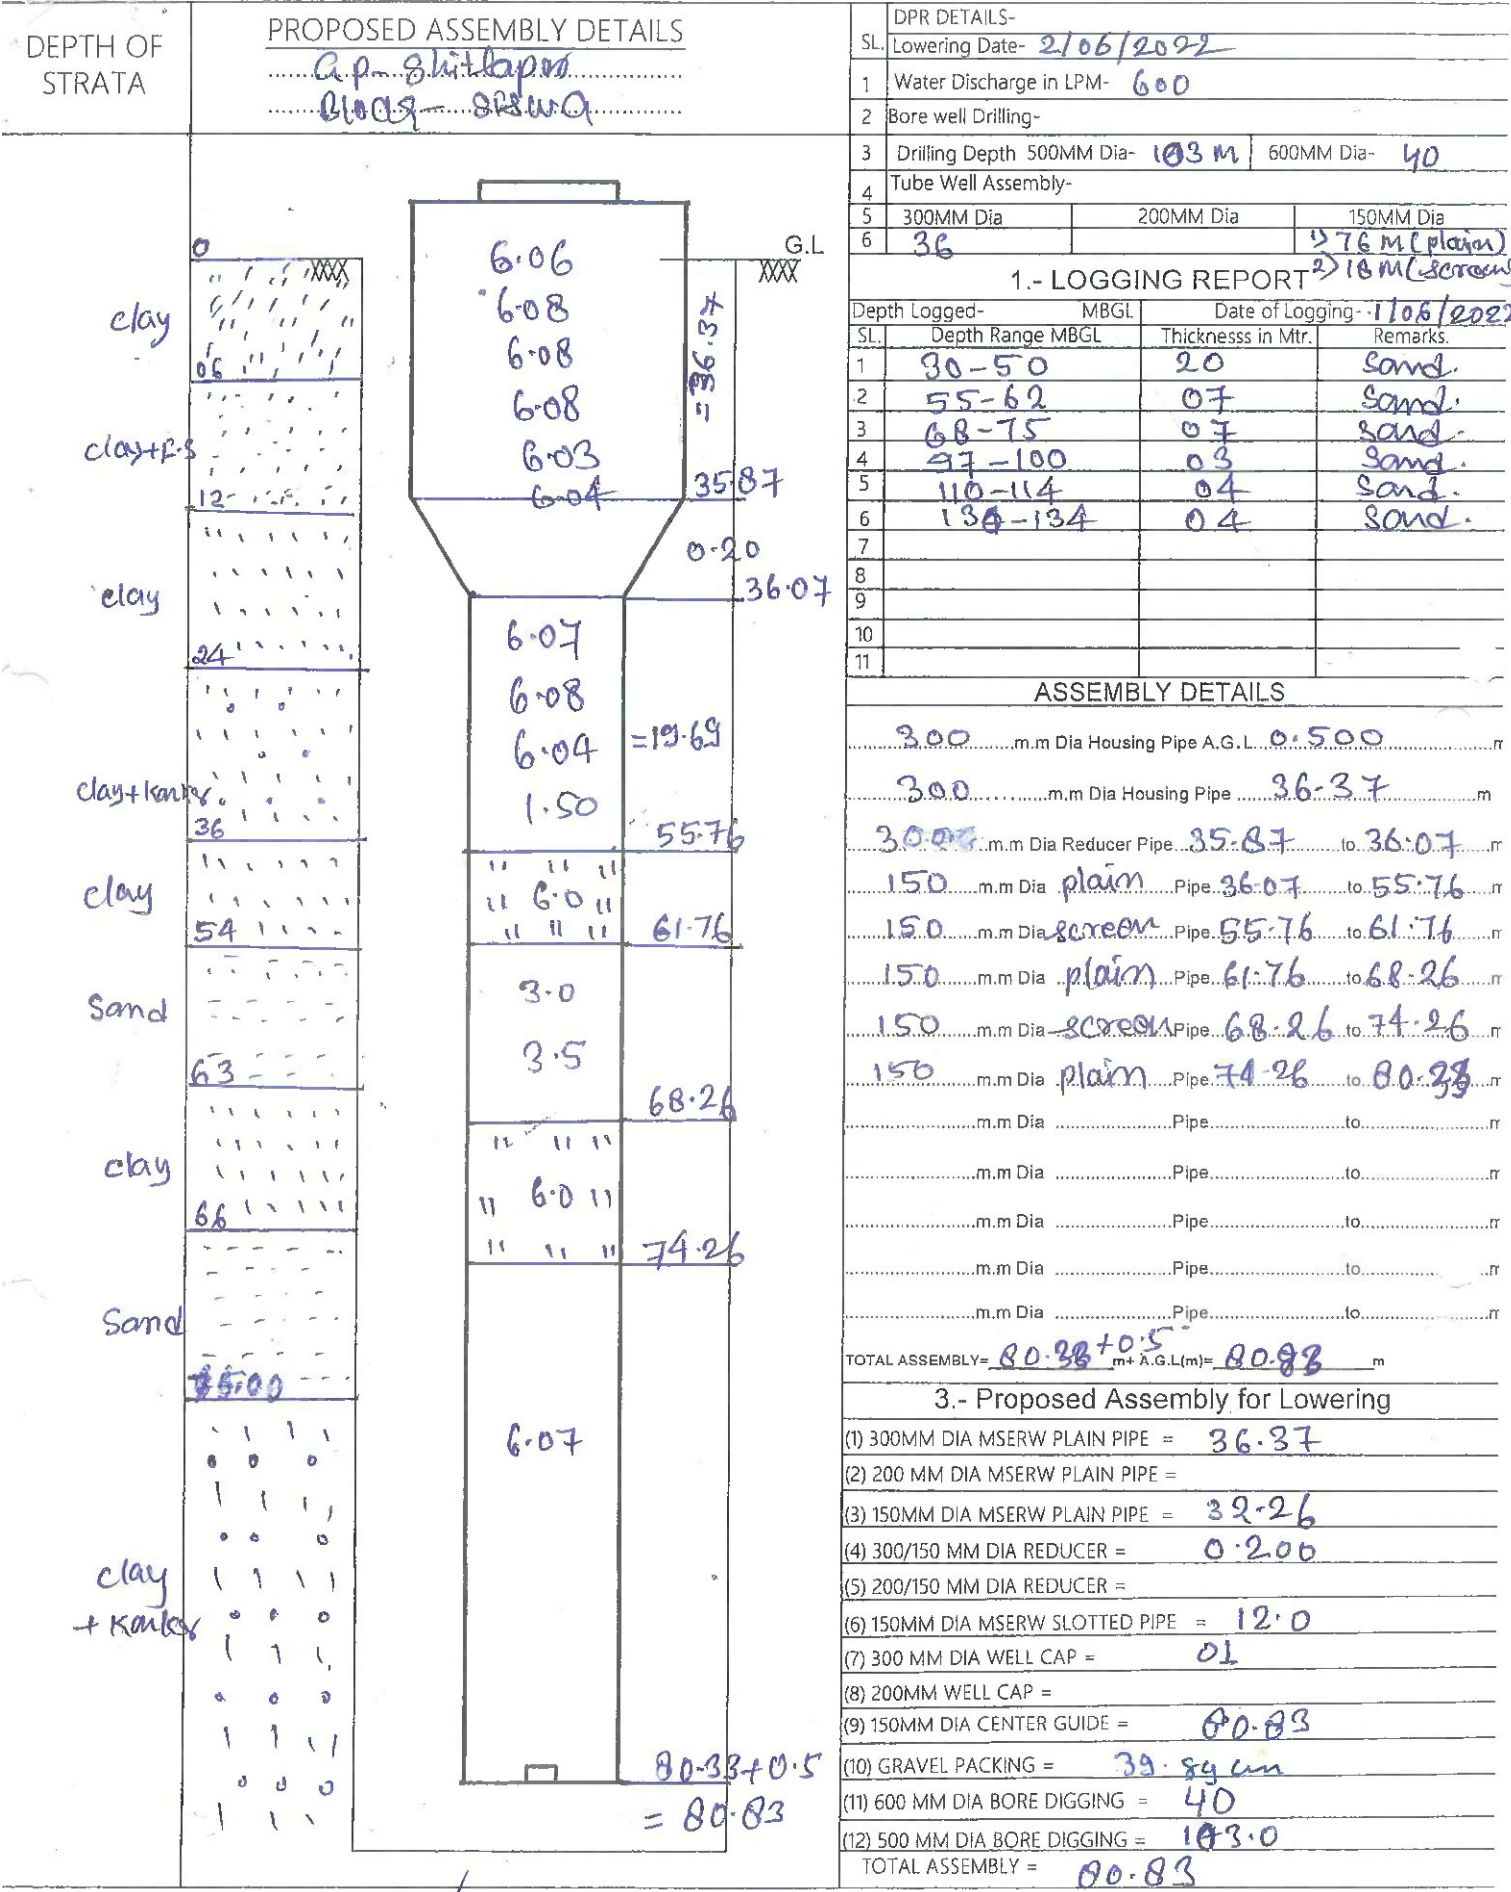 DEPTH OF
STRATA
PROPOSED ASSEMBLY DETAILS
G.P- Shitlapur
Block-
0
clay
06
clay+F.S
12
clay
24
clay+Kankr.
36
clay
54
Sand
63
clay
66
Sand
clay
+ Kanker
6.06
6.08
6.08
6.08
6.03
6.04
G.L
=36.37
35.87
0.20
36.07
6.07
6.08
6.04
1.50
=19.69
55.76
6.0
61.76
3.0
3.5
68.26
6.0
74.26
6.07
80.33+0.5
= 80.83
DPR DETAILS-
SL. Lowering Date- 2/06/2022
1 Water Discharge in LPM- 600
2 Bore well Drilling-
3 Drilling Depth 500MM Dia- 103 M 600MM Dia- 40
4 Tube Well Assembly-
5 300MM Dia 200MM Dia 150MM Dia
6 36 1) 76 M (plain)
2) 18 M (screen)
1.- LOGGING REPORT
Depth Logged- MBGL Date of Logging- 1/06/2022
SL. Depth Range MBGL Thicknesss in Mtr. Remarks.
1 30-50 20 Sand.
2 55-62 07 Sand.
3 68-75 07 Sand.
4 97-100 03 Sand.
5 110-114 04 Sand.
6 130-134 04 Sand.
7
8
9
10
11
ASSEMBLY DETAILS
300 m.m Dia Housing Pipe A.G.L. 0.500 m
300 m.m Dia Housing Pipe 36.37 m
300 m.m Dia Reducer Pipe 35.87 to 36.07 m
150 m.m Dia plain Pipe 36.07 to 55.76 m
150 m.m Dia screen Pipe 55.76 to 61.76 m
150 m.m Dia plain Pipe 61.76 to 68.26 m
150 m.m Dia screen Pipe 68.26 to 74.26 m
150 m.m Dia plain Pipe 74.26 to 80.33 m
m.m Dia Pipe to m
m.m Dia Pipe to m
m.m Dia Pipe to m
m.m Dia Pipe to m
m.m Dia Pipe to m
TOTAL ASSEMBLY= 80.33 +0.5 m+ A.G.L(m)= 80.83 m
3.- Proposed Assembly for Lowering
(1) 300MM DIA MSERW PLAIN PIPE = 36.37
(2) 200 MM DIA MSERW PLAIN PIPE =
(3) 150MM DIA MSERW PLAIN PIPE = 32.26
(4) 300/150 MM DIA REDUCER = 0.200
(5) 200/150 MM DIA REDUCER =
(6) 150MM DIA MSERW SLOTTED PIPE = 12.0
(7) 300 MM DIA WELL CAP = 01
(8) 200MM WELL CAP =
(9) 150MM DIA CENTER GUIDE = 80.83
(10) GRAVEL PACKING = 39.
(11) 600 MM DIA BORE DIGGING = 40
(12) 500 MM DIA BORE DIGGING = 103.0
TOTAL ASSEMBLY = 80.83